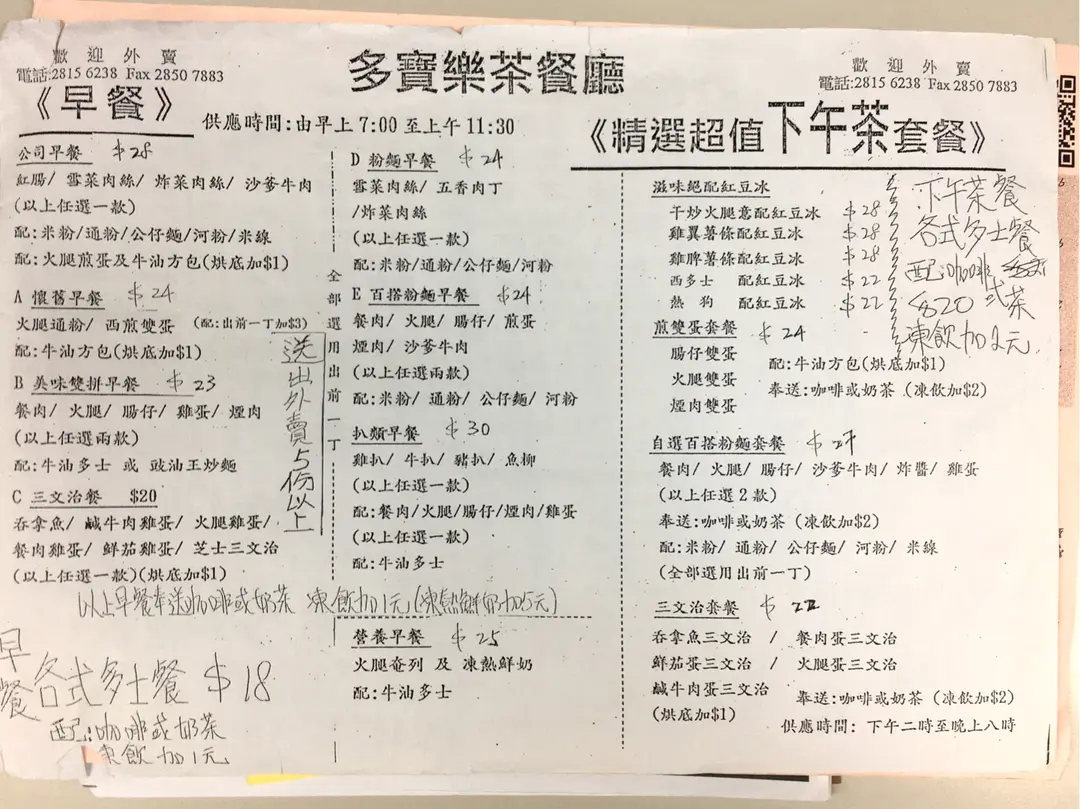 歡迎外賣
電話:2815 6238 Fax 2850 7883
多寶樂茶餐廳
歡迎外賣
電話:2815 6238 Fax 2850 7883
《早餐》
供應時間:由早上 7:00 至上午 11:30
公司早餐 $28
紅腸/ 雪菜肉絲/ 炸菜肉絲/ 沙爹牛肉
(以上任選一款)
配:米粉/通粉/公仔麵/河粉/米線
配:火腿煎蛋及牛油方包(烘底加$1)
A 懷舊早餐 $24
火腿通粉/ 西煎雙蛋 (配:出前一丁加$3)
配:牛油方包(烘底加$1)
B 美味雙拼早餐 $23
餐肉/ 火腿/ 腸仔/ 雞蛋/ 煙肉
(以上任選兩款)
配:牛油多士 或 豉油王炒麵
C 三文治餐 $20
吞拿魚/ 鹹牛肉雞蛋/ 火腿雞蛋/
餐肉雞蛋/ 鮮茄雞蛋/ 芝士三文治
(以上任選一款)(烘底加$1)
送出外賣5份以上
全部選用出前一丁
D 粉麵早餐 $24
雪菜肉絲/ 五香肉丁
/炸菜肉絲
(以上任選一款)
配:米粉/通粉/公仔麵/河粉
E 百搭粉麵早餐 $24
餐肉/ 火腿/ 腸仔/ 煎蛋
煙肉/ 沙爹牛肉
(以上任選兩款)
配:米粉/ 通粉/ 公仔麵/ 河粉
扒類早餐 $30
雞扒/ 牛扒/ 豬扒/ 魚柳
(以上任選一款)
配:餐肉/火腿/腸仔/煙肉/雞蛋
(以上任選一款)
配:牛油多士
以上早餐奉送咖啡或奶茶 凍飲加1元(凍熱鮮奶加5元)
營養早餐 $25
火腿奄列 及 凍熱鮮奶
配:牛油多士
早餐
各式多士餐 $18
配:咖啡或奶茶
凍飲加1元
《精選超值下午茶套餐》
滋味絕配紅豆冰
干炒火腿意配紅豆冰 $28
雞翼薯條配紅豆冰 $28
雞脾薯條配紅豆冰 $28
西多士 配紅豆冰 $22
熱 狗 配紅豆冰 $22
下午茶餐
各式多士餐
配:咖啡 或茶
$20
凍飲加2元
煎雙蛋套餐 $24
腸仔雙蛋
火腿雙蛋
煙肉雙蛋
配:牛油方包(烘底加$1)
奉送:咖啡或奶茶 (凍飲加$2)
自選百搭粉麵套餐 $27
餐肉/ 火腿/ 腸仔/ 沙爹牛肉/ 炸醬/ 雞蛋
(以上任選2款)
奉送:咖啡或奶茶 (凍飲加$2)
配:米粉/ 通粉/ 公仔麵/ 河粉/ 米線
(全部選用出前一丁)
三文治套餐 $22
吞拿魚三文治 / 餐肉蛋三文治
鮮茄蛋三文治 / 火腿蛋三文治
鹹牛肉蛋三文治 奉送:咖啡或奶茶 (凍飲加$2)
(烘底加$1)
供應時間: 下午二時至晚上八時